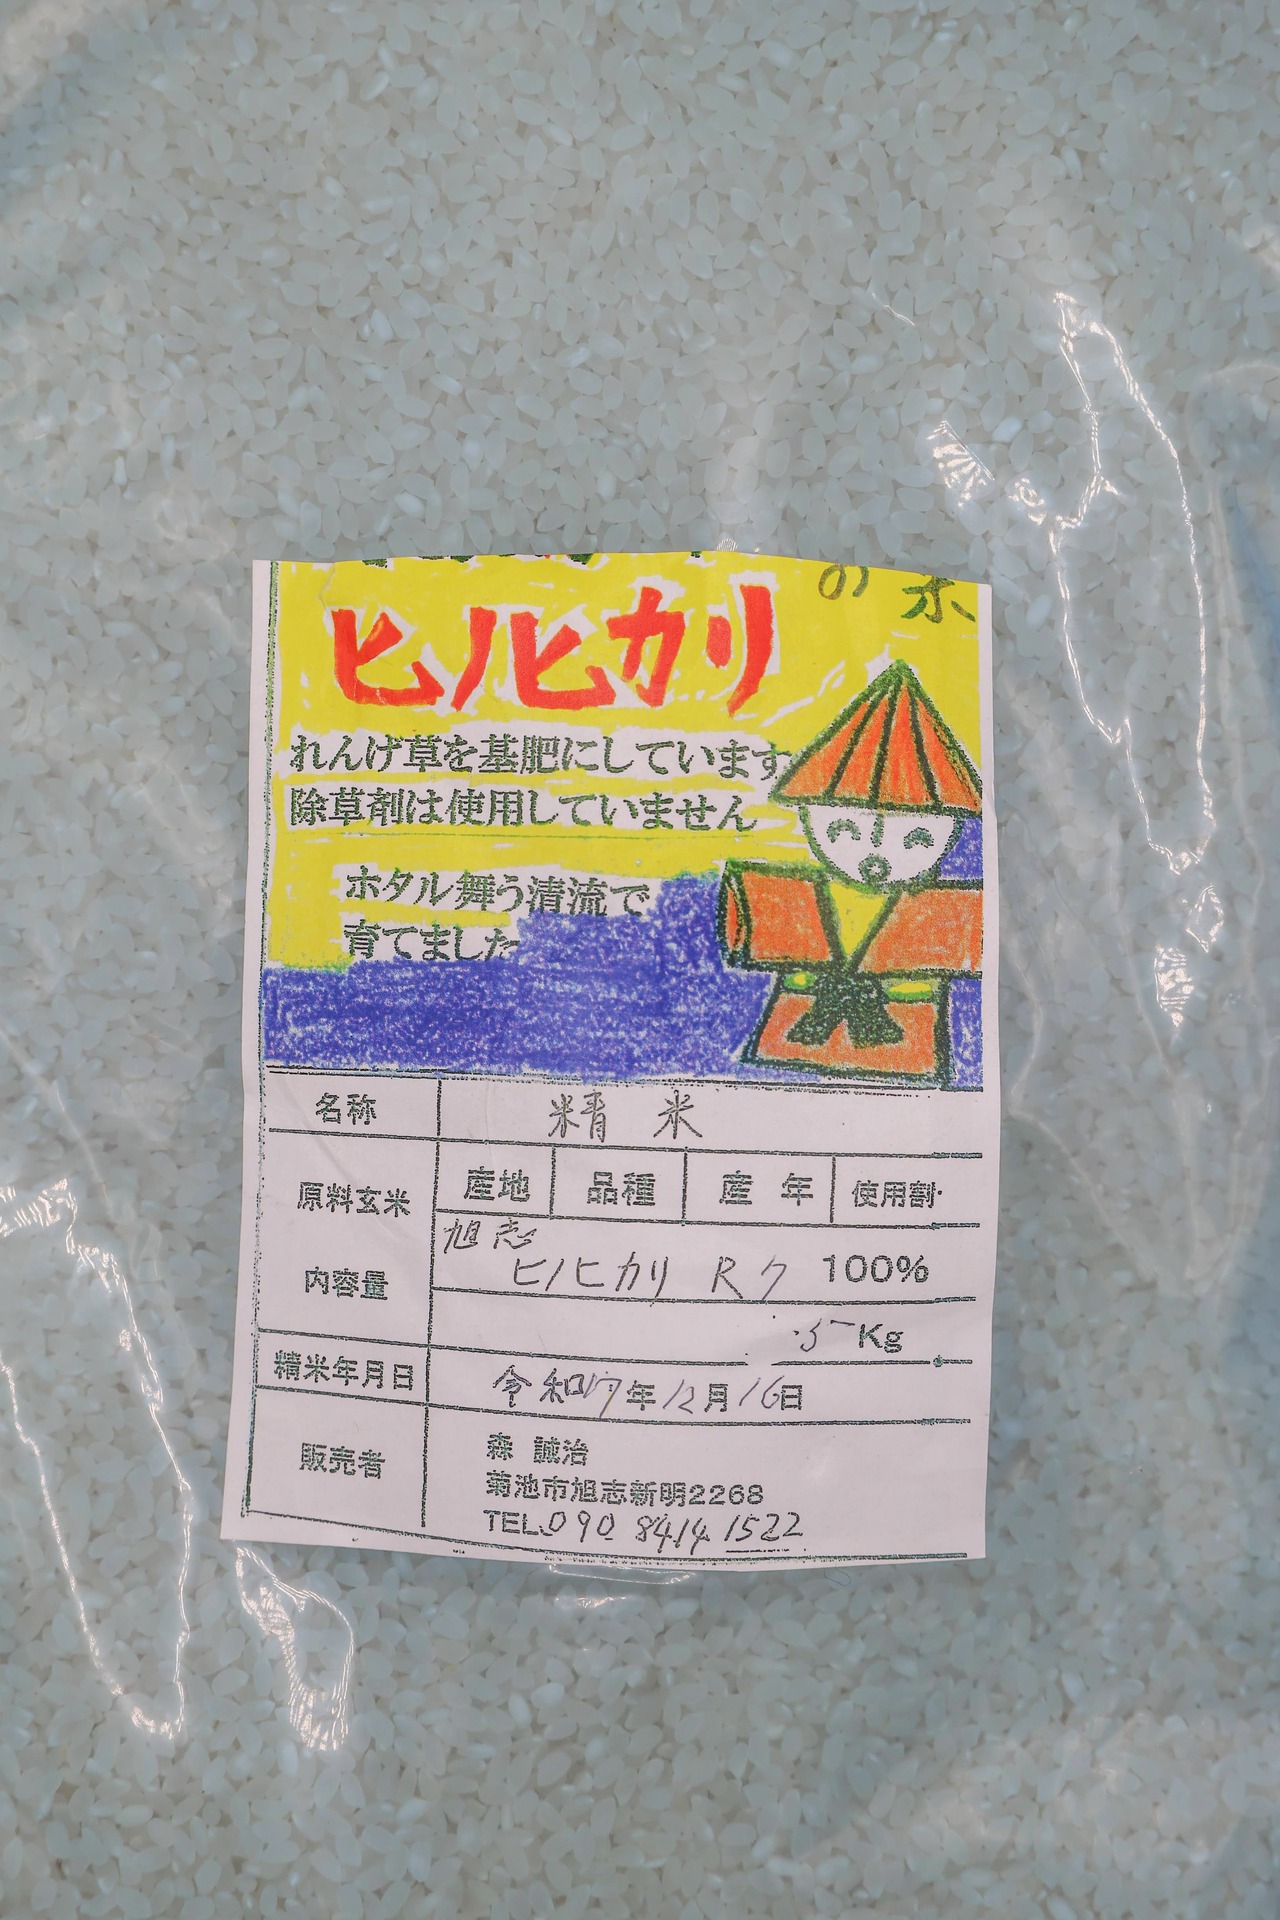 の 米
ヒノヒカリ
れんげ草を基肥にしています
除草剤は使用していません
ホタル舞う清流で
育てました
名称 精 米
原料玄米 産地 品種 産 年 使用割
旭志
ヒノヒカリ R7 100%
内容量
5 Kg
精米年月日 令和7年12月16日
販売者 森 誠治
菊池市旭志新明2268
TEL.090 8414 1522